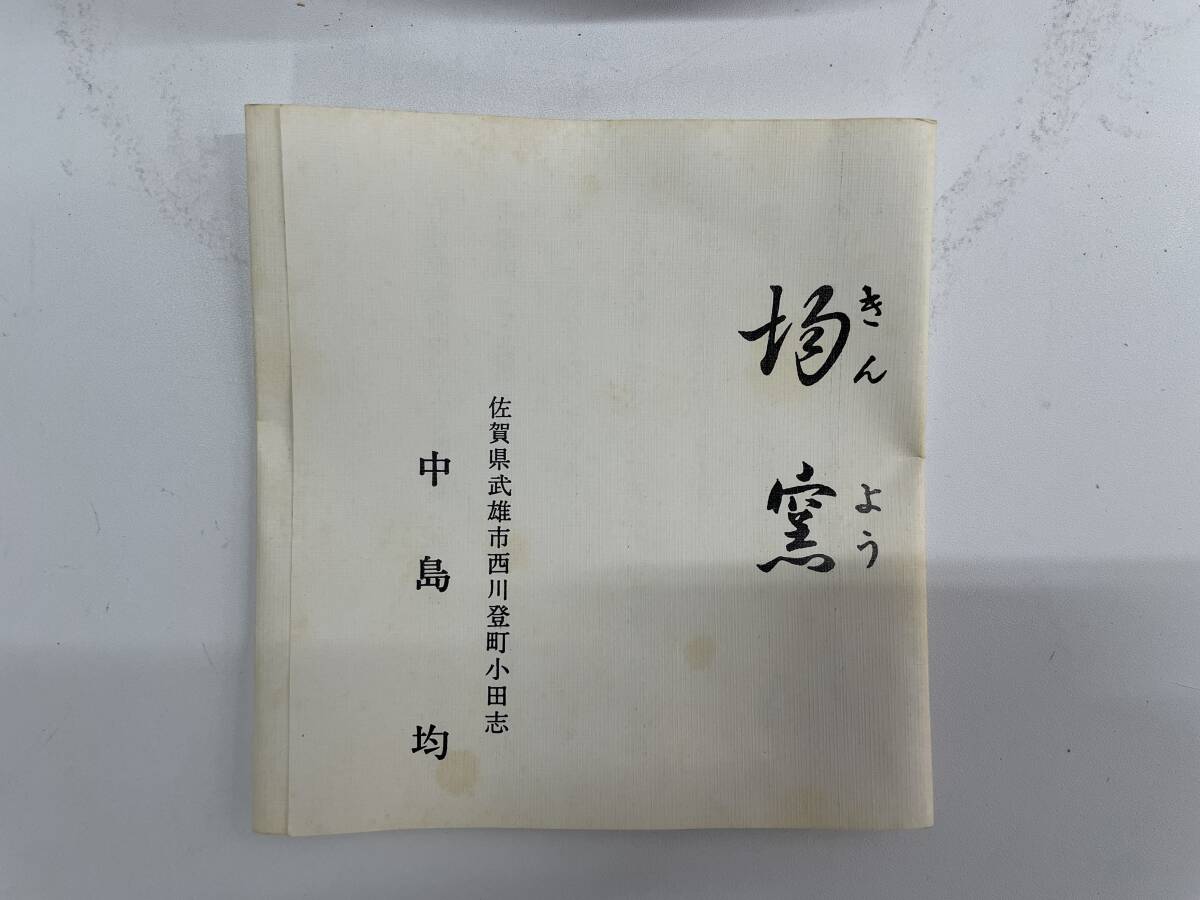 均窯
きんよう
佐賀県武雄市西川登町小田志
中島均